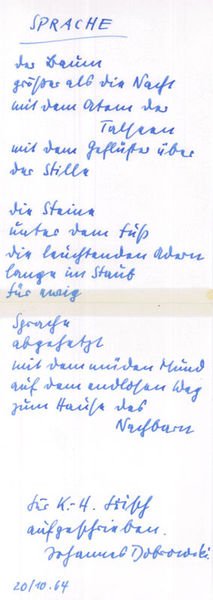 SPRACHE
der Baum
größer als die Nacht
mit dem Atem der
Talseen
mit dem Geflüster über
der Stille
die Steine
unter dem Fuß
die leuchtenden Adern
lange im Staub
für ewig
Sprache
abgehetzt
mit dem müden Mund
auf dem endlosen Weg
zum Hause des
Nachbarn
für K.-H. Frisch
aufgeschrieben.
Johannes Bobrowski.
20/10.64